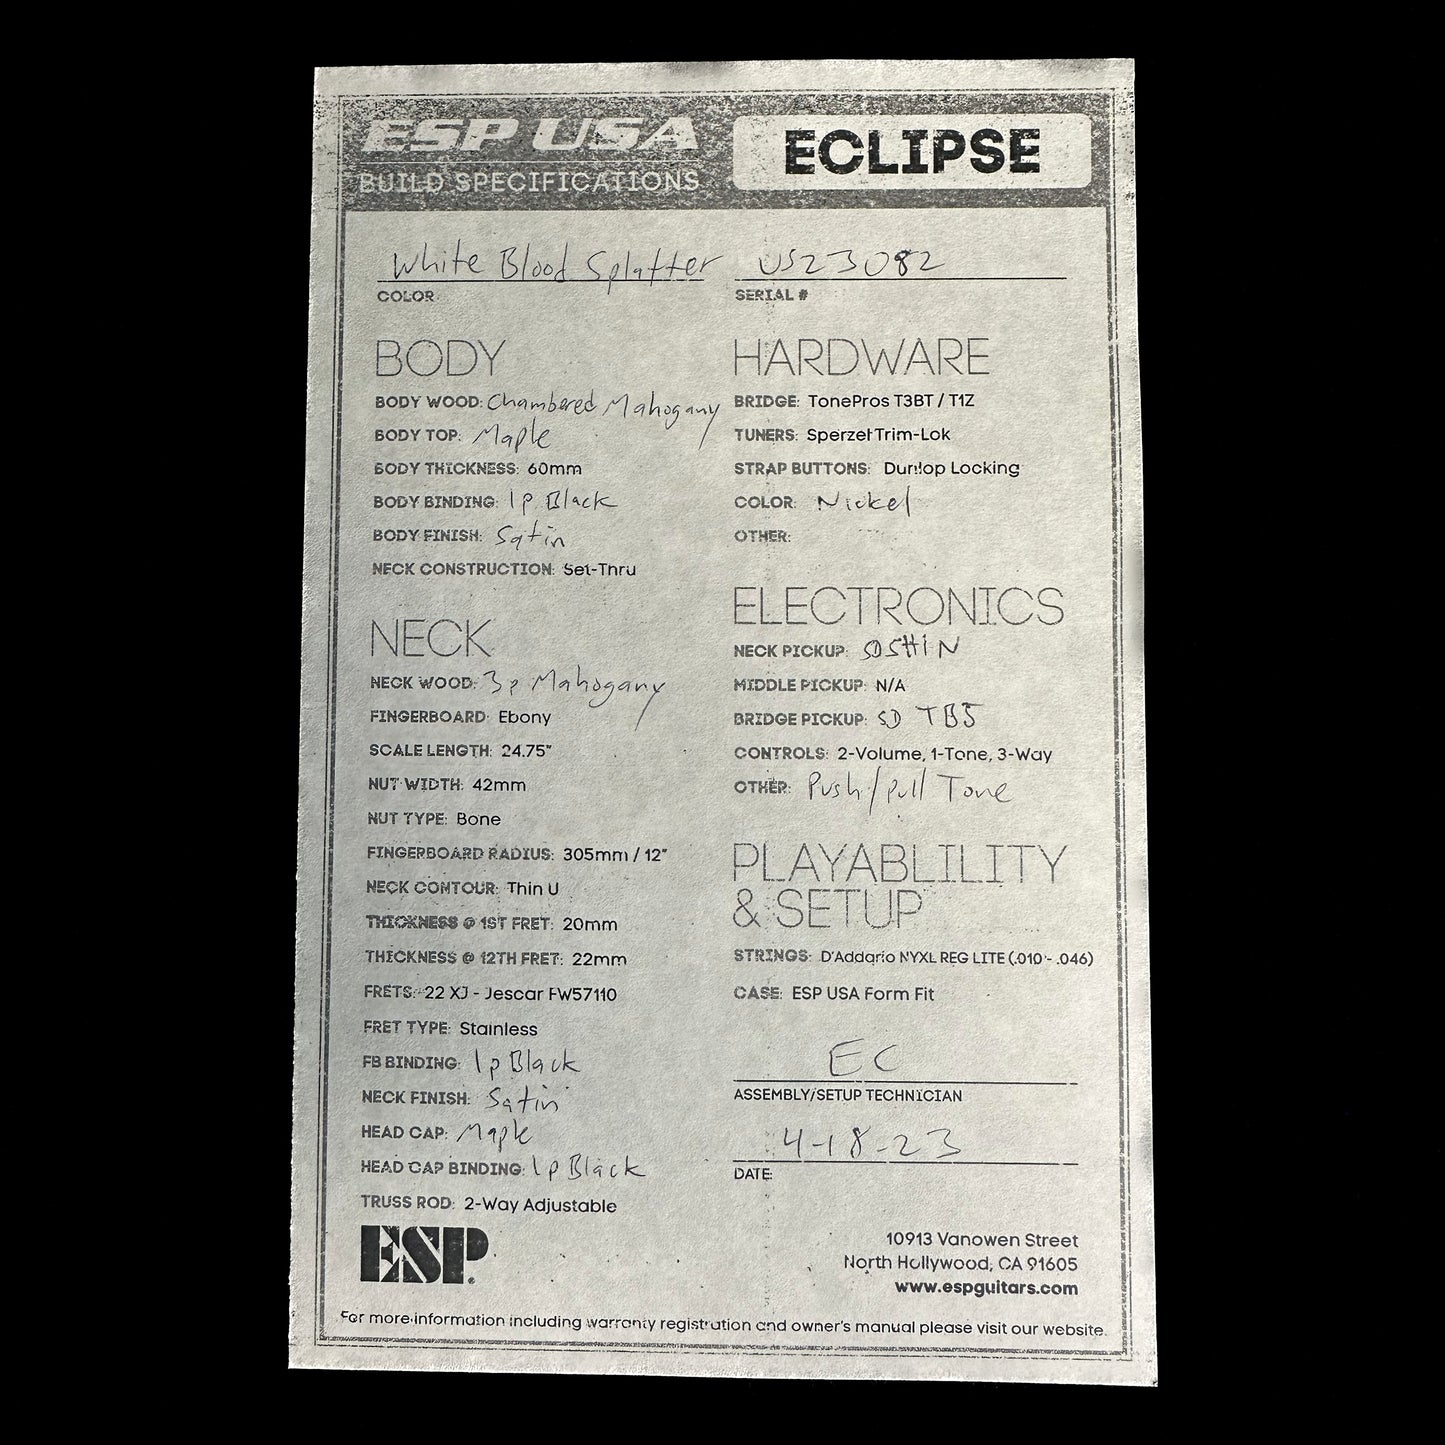 ESP USA
BUILD SPECIFICATIONS
ECLIPSE
White Blood Splatter
COLOR
US23082
SERIAL #
BODY
BODY WOOD: Chambered Mahogany
BODY TOP: Maple
BODY THICKNESS: 60mm
BODY BINDING: 1p Black
BODY FINISH: Satin
NECK CONSTRUCTION: Set-Thru
NECK
NECK WOOD: 3p Mahogany
FINGERBOARD: Ebony
SCALE LENGTH: 24.75"
NUT WIDTH: 42mm
NUT TYPE: Bone
FINGERBOARD RADIUS: 305mm / 12"
NECK CONTOUR: Thin U
THICKNESS @ 1ST FRET: 20mm
THICKNESS @ 12TH FRET: 22mm
FRETS: 22 XJ - Jescar FW57110
FRET TYPE: Stainless
FB BINDING: 1p Black
NECK FINISH: Satin
HEAD CAP: Maple
HEAD CAP BINDING: 1p Black
TRUSS ROD: 2-Way Adjustable
HARDWARE
BRIDGE: TonePros T3BT / T1Z
TUNERS: Sperzel Trim-Lok
STRAP BUTTONS: Dunlop Locking
COLOR: Nickel
OTHER:
ELECTRONICS
NECK PICKUP: SDSH1N
MIDDLE PICKUP: N/A
BRIDGE PICKUP: SD TB5
CONTROLS: 2-Volume, 1-Tone, 3-Way
OTHER: Push/pull Tone
PLAYABLILITY
& SETUP
STRINGS: D'Addario NYXL REG LITE (.010 - .046)
CASE: ESP USA Form Fit
EC
ASSEMBLY/SETUP TECHNICIAN
4-18-23
DATE:
ESP®
10913 Vanowen Street
North Hollywood, CA 91605
www.espguitars.com
For more information including warranty registration and owner's manual please visit our website.